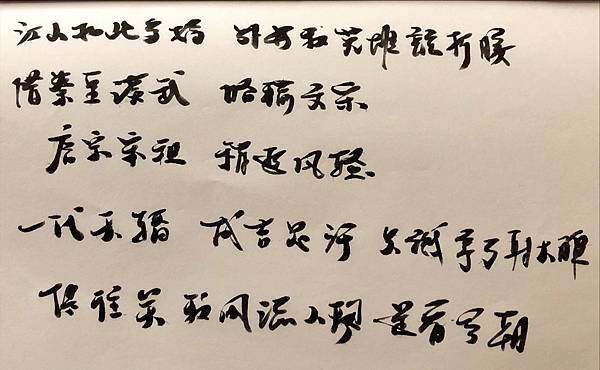 江山如此多娇 引无数英雄竞折腰
惜秦皇汉武 略输文采
唐宗宋祖 稍逊风骚
一代天骄 成吉思汗 只识弯弓射大雕
俱往矣 数风流人物 还看今朝